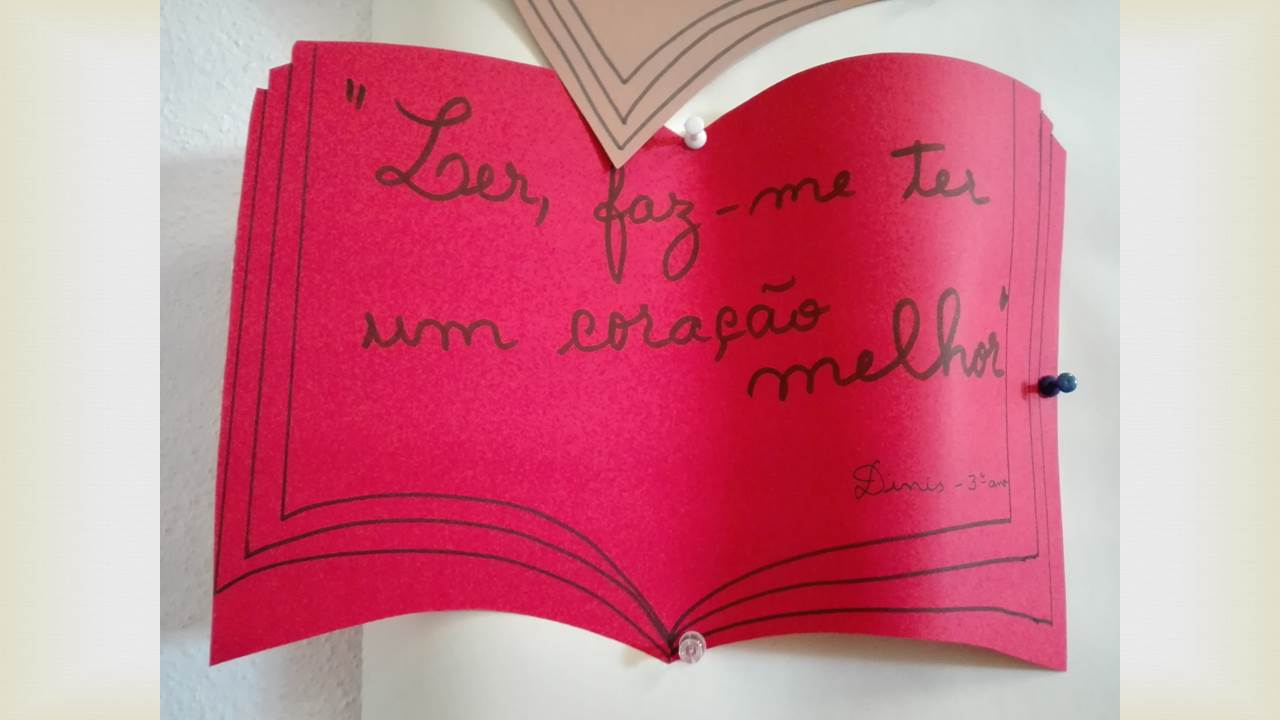 "Ler, faz-me ter
um coração
melhor"
Dinis - 3º ano